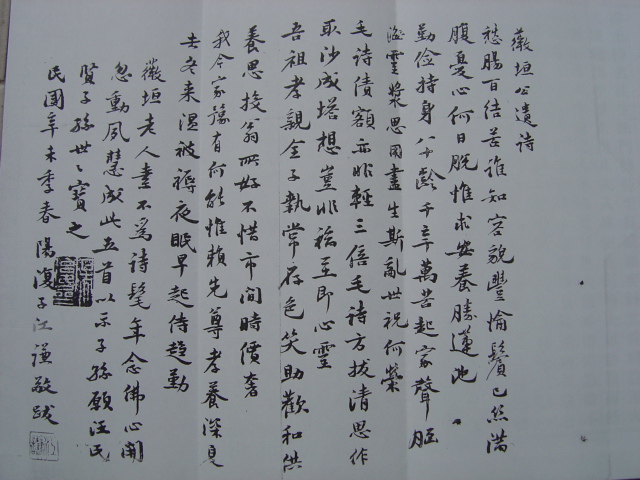 薇垣公遺詩
愁腸百結苦誰知容貌豐愉鬢已絲滿
腹憂心何日脫惟求安養勝蓮池
勤儉持身八十齡千辛萬苦起家聲
靈漿思國盡生斯亂世祝何榮
毛詩債額亦非輕三倍毛詩方拔清思作
取沙成塔想豈非福至即心靈
吾祖孝親全子執常存色笑助歡和供
養思投翁所好不惜市間時價奢
我今家豫有何能惟賴先尊孝養深夏
去冬來溫被褥夜眠早起侍趨勤
薇垣老人素不爲詩髦年念佛心開
忽動夙慧成此五首以示子孫願汪民
賢子孫世々寶之
民國辛未季春陽復子江謙敬跋